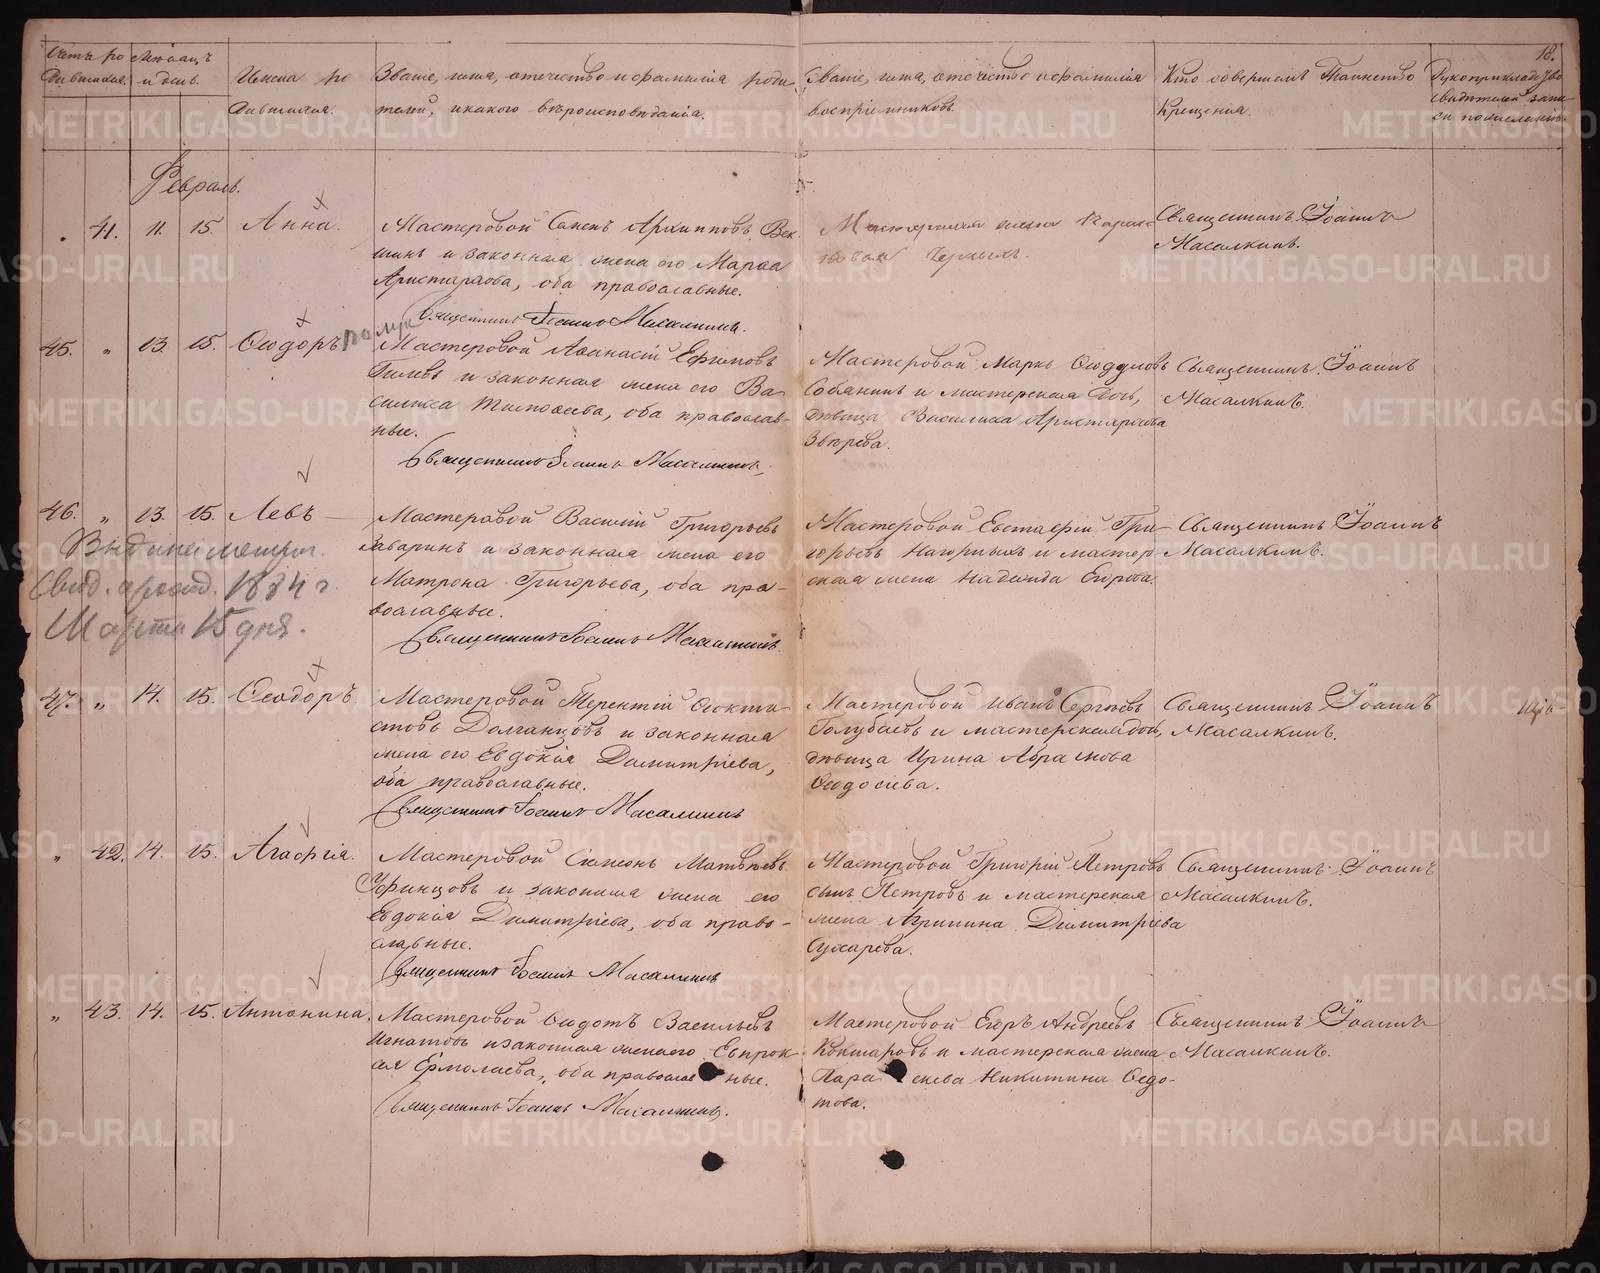 18.
Счетъ ро Мѣсяцъ
дившихся. и день. Имена ро Званіе, имя, отечество и фамилія роди- Званіе, имя, отечество и фамилія Кто совершалъ Таинство Рукоприкладство
дившихся. телей, и какого вѣроисповѣданія. воспріемниковъ. Крещенія. свидѣтелей запи
си по желанію.
Февраль.
41. 11. 15. Анна. Мастеровой Архипповъ Священникъ Іоаннъ
и законная жена его Марѳа Масалкинъ.
Аристархова, оба православные.
Священникъ Іоаннъ Масалкинъ.
45. " 13. 15. Ѳеодоръ Мастеровой Аѳанасій Ефимовъ Мастеровой Маркъ Священникъ Іоаннъ
Гилевъ и законная жена его Ва- Собанинъ и мастерская дочь, Масалкинъ.
силиса Тимоѳеева, оба православ- дѣвица Василиса Аристархова
ные. Звѣрева.
Священникъ Іоаннъ Масалкинъ.
46. " 13. 15. Левъ Мастеровой Василій Григорьевъ Мастеровой Евстафій Гри- Священникъ Іоаннъ
и законная жена его горьевъ Нагорныхъ и мастер- Масалкинъ.
Матрона Григорьева, оба пра- ская жена Надежда
вославные.
Священникъ Іоаннъ Масалкинъ.
Выдана метрич.
Свид. 1884 г.
Марта 15 дня.
47. " 14. 15. Ѳеодоръ Мастеровой Терентій Ѳеокти- Мастеровой Иванъ Сергѣевъ Священникъ Іоаннъ
стовъ Долганцовъ и законная Голубевъ и мастерская дочь, Масалкинъ.
жена его Евдокія Димитріева, дѣвица Ирина Абрамова
оба православные. Ѳеодосіева.
Священникъ Іоаннъ Масалкинъ
" 42. 14. 15. Агаѳія. Мастеровой Симеонъ Матвѣевъ Мастеровой Григорій Петровъ Священникъ Іоаннъ
Уфинцовъ и законная жена его сынъ Петровъ и мастерская Масалкинъ.
Евдокія Димитріева, оба право- жена Агрипина Димитріева
славные. Сухарева.
Священникъ Іоаннъ Масалкинъ
" 43. 14. 15. Антонина. Мастеровой Ѳедотъ Васильевъ Мастеровой Егоръ Андреевъ Священникъ Іоаннъ
Игнатовъ и законная жена его Евпрак- Кокшаровъ и мастерская жена Масалкинъ.
сія Ермолаева, оба православные. Параскева Никитина Ѳедо-
това.
Священникъ Іоаннъ Масалкинъ.
METRIKI.GASO-URAL.RU